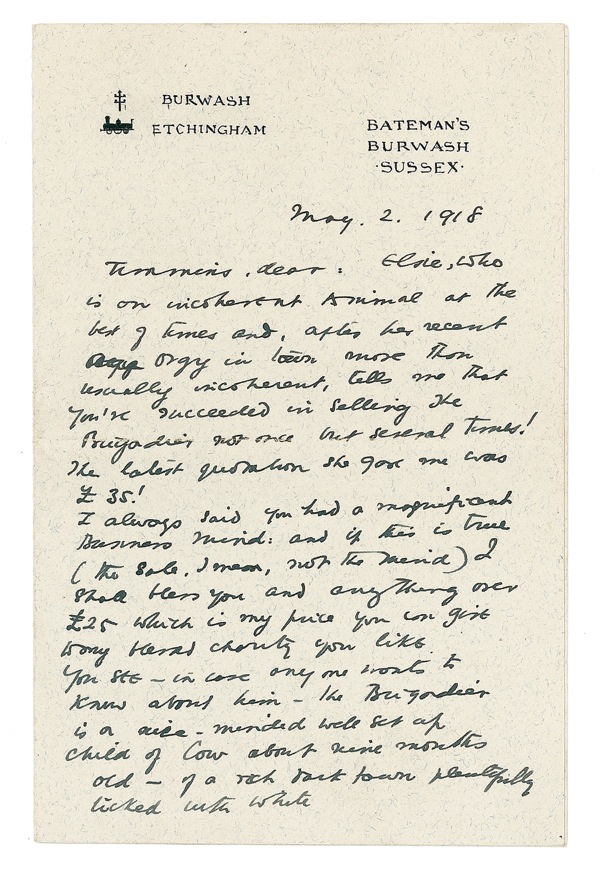 BURWASH
ETCHINGHAM
BATEMAN'S
BURWASH
·SUSSEX·
May. 2. 1918
Timmins, dear: Elsie, who
is an incoherent Animal at the
best of times and, after her recent
orgy in town more than
usually incoherent, tells me that
You've succeeded in selling the
Brigadier not once but several times!
The latest quotation she gave me was
£35!
I always said you had a magnificent
Business mind: and if this is true
(the Sale, I mean, not the mind) I
shall bless you and anything over
£25 which is my price you can give
to any blessed charity you like.
You see – in case anyone wants to
know about him – the Brigadier
is a nice-minded well set up
child of Cow about nine months
old – of a rich dark brown plentifully
licked with white